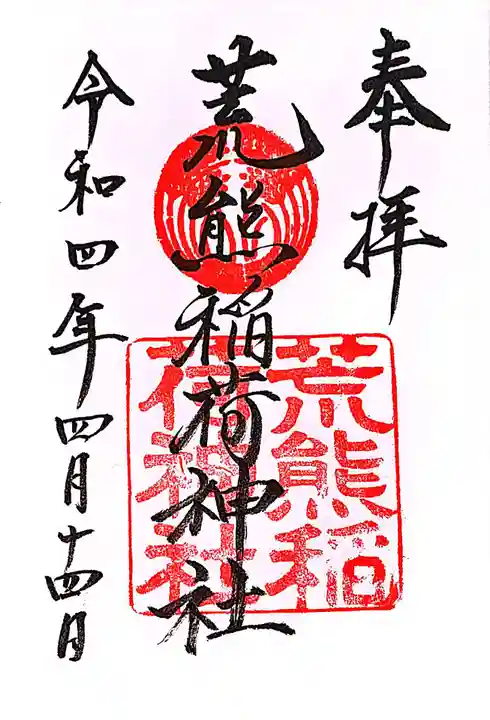 奉拝
荒熊稲荷神社
荒熊稲
荷神社
令和四年四月十四日